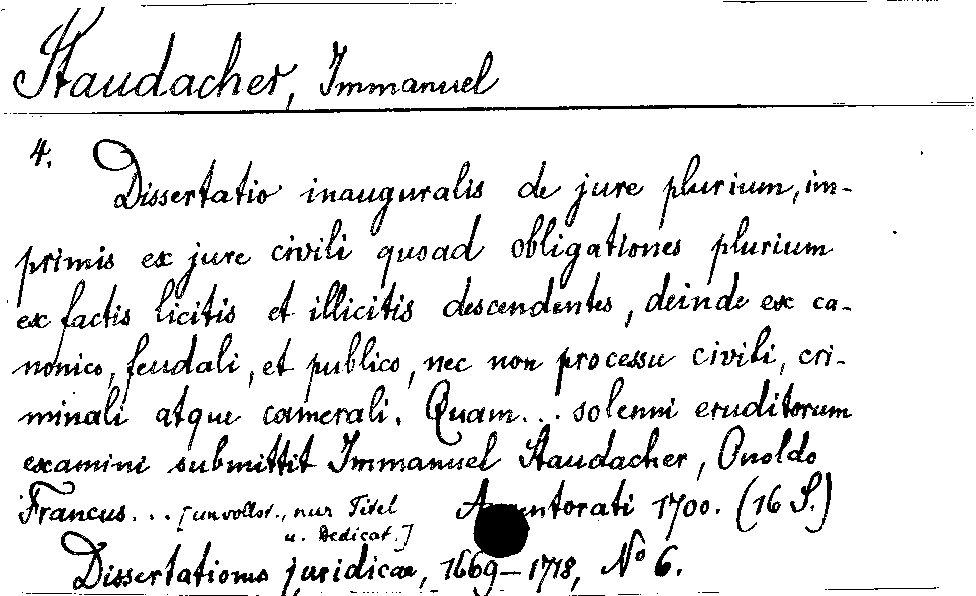 Staudacher, Immanuel
4.
Dissertatio inauguralis de jure plurium, im-
primis ex jure civili quoad obligationes plurium
ex factis licitis et illicitis descendentes, deinde ex ca-
nonico, feudali, et publico, nec non processu civili, cri-
minali atque camerali. Quam... solenni eruditorum
examini submittit Immanuel Staudacher, Onoldo
Francus... [unvollst., nur Titel
u. Dedicat.]
1700. (16 S.)
Dissertationes juridicae, 1669-1718, No 6.